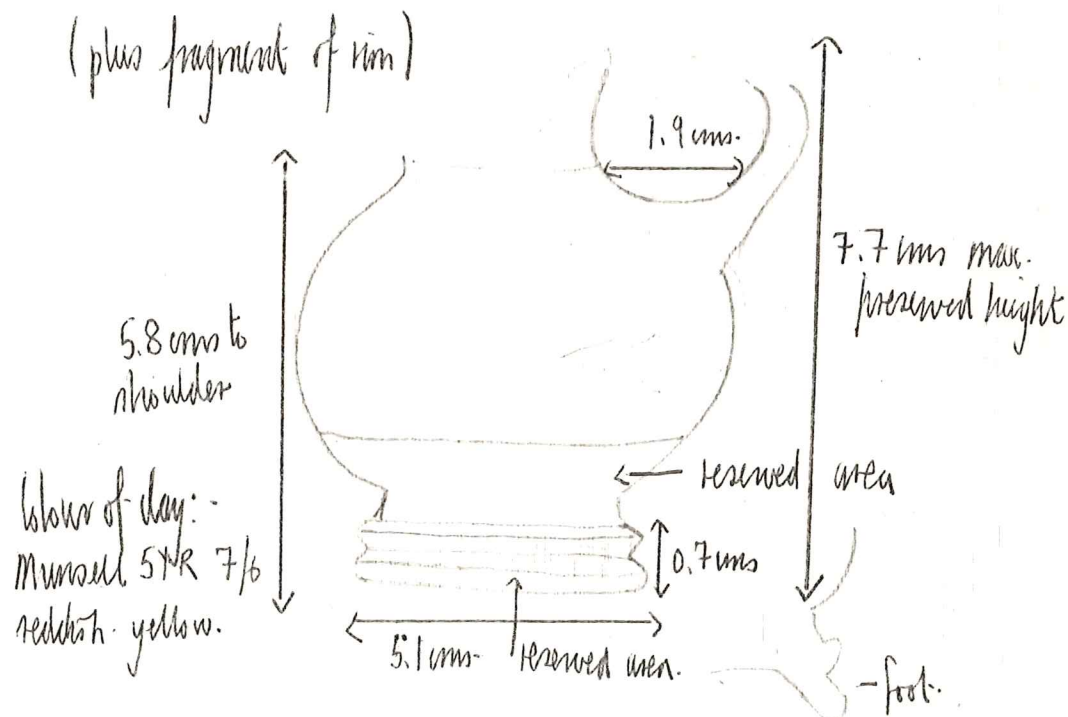 (plus fragment of rim)
1.9 cms.
7.7 cms max.
preserved height
5.8 cms to
shoulder
reserved area
Colour of clay:-
Munsell 5YR 7/6
reddish-yellow.
0.7 cms
5.1 cms
reserved area.
- foot.